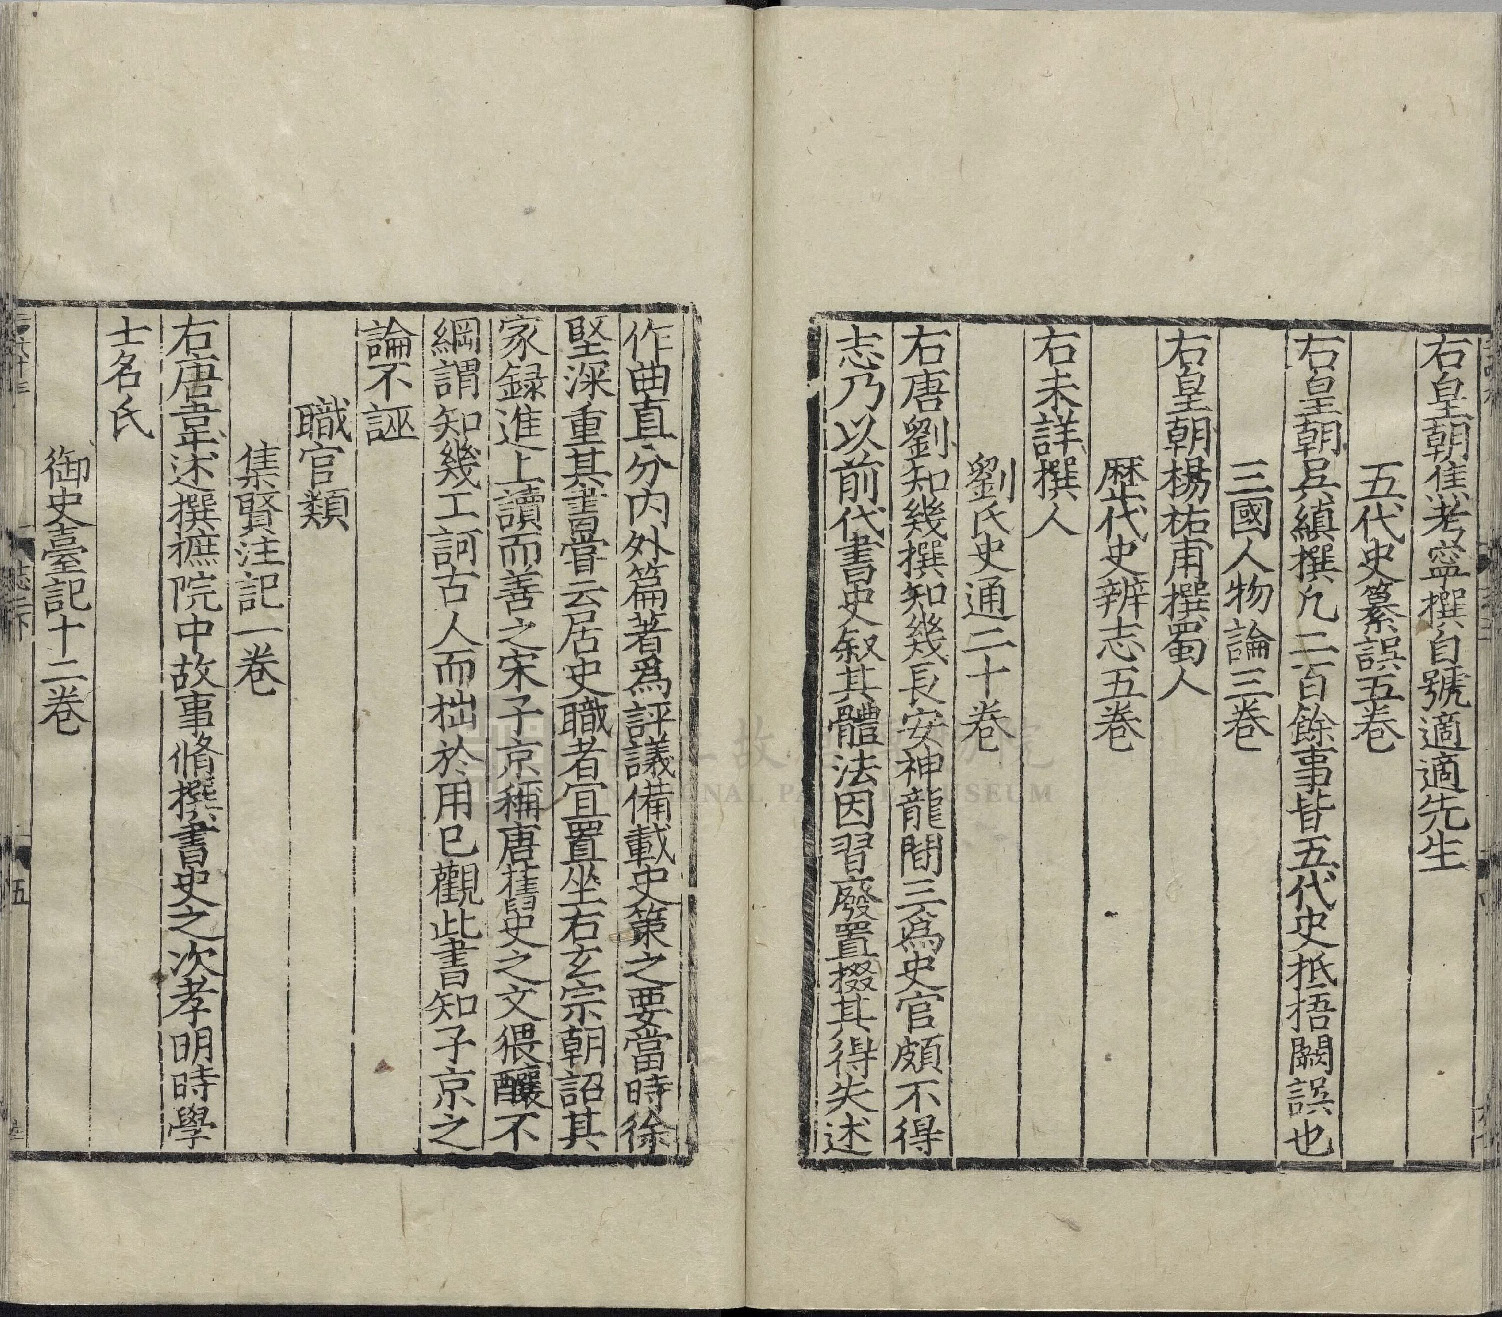 右皇朝焦考寧撰自號適適先生
五代史纂誤五卷
右皇朝吳縝撰凡二百餘事皆五代史抵捂闕誤也
三國人物論三卷
右皇朝楊祐甫撰蜀人
歷代史辨志五卷
右未詳撰人
劉氏史通二十卷
右唐劉知幾撰知幾長安神龍間三為史官頗不得
志乃以前代書史叙其體法因習廢置掇其得失述
作曲直分内外篇著爲評議備載史策之要當時徐
堅深重其書嘗云居史職者宜置坐右玄宗朝詔其
家録進上讀而善之宋子京稱唐舊史之文猥釀不
綱謂知幾工訶古人而拙於用已觀此書知子京之
論不誣
職官類
集賢注記一卷
右唐韋述撰摭院中故事脩撰書史之次孝明時學
士名氏
御史臺記十二卷
五
NATIONAL PALACE MUSEUM